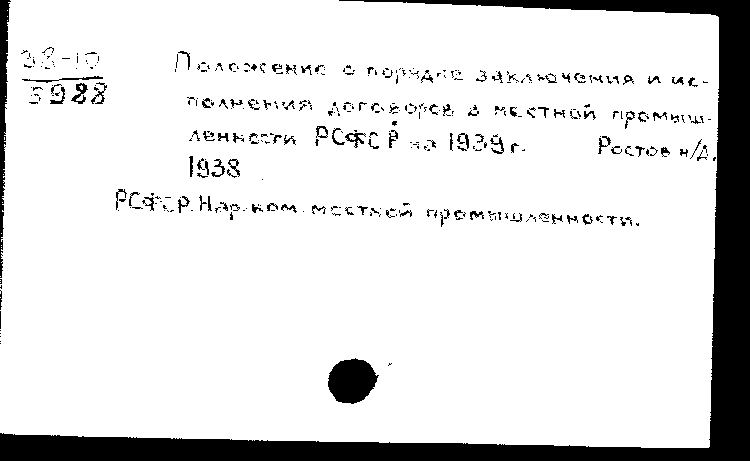 38-10
5988
Положение о порядке заключения и ис-
полнения договоров в местной промыш-
ленности РСФСР на 1939 г. Ростов н/Д.
1938
РСФСР. Нар. ком. местной промышленности.